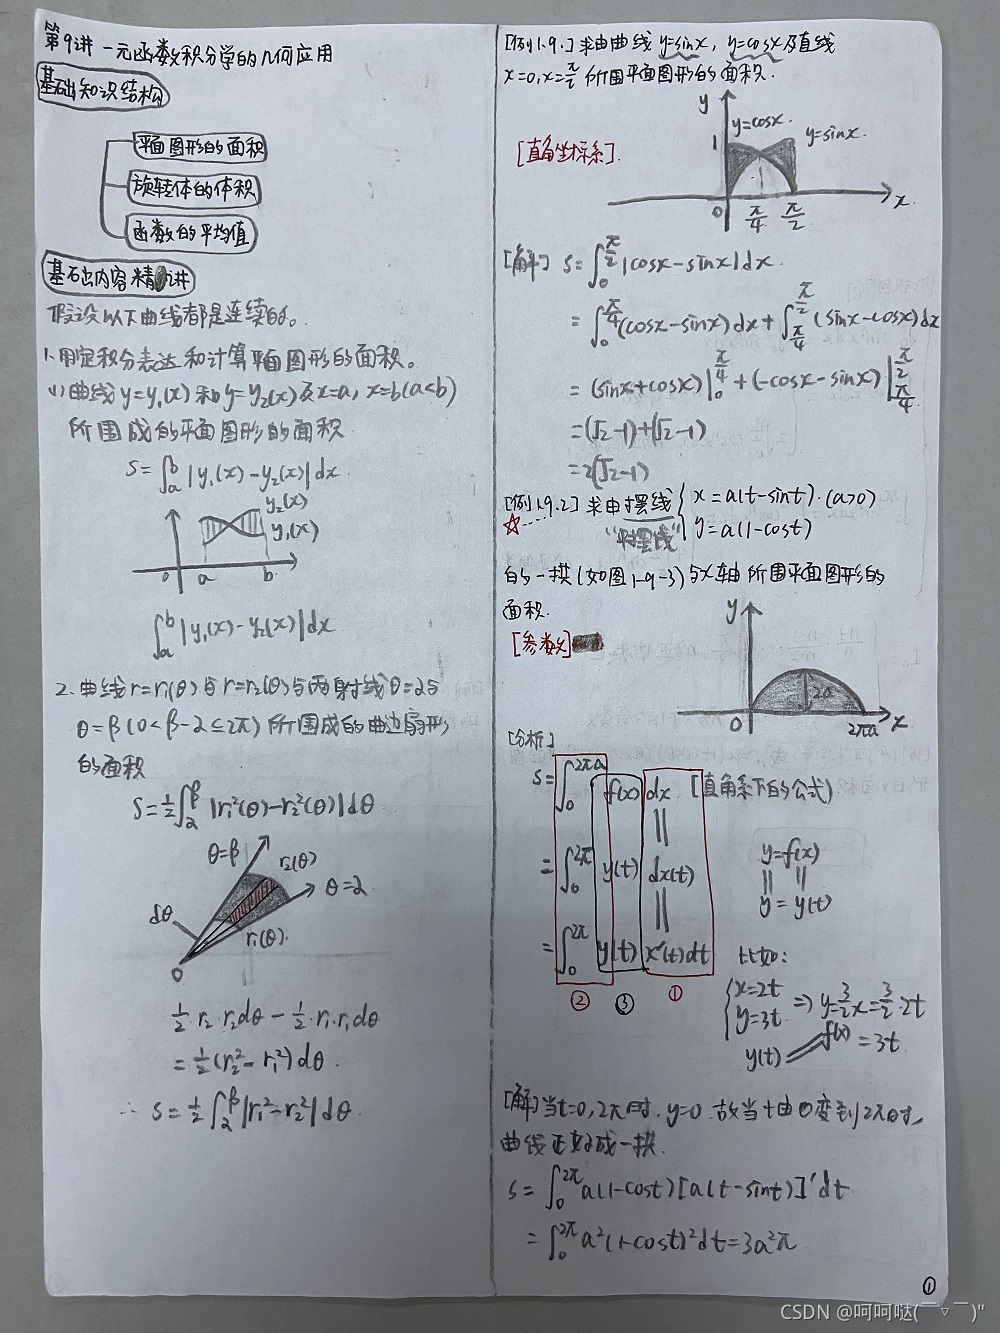 第9讲 一元函数积分学的几何应用
基础知识结构
平面图形的面积
旋转体的体积
函数的平均值
基础内容精讲
假设以下曲线都是连续的。
1. 用定积分表达和计算平面图形的面积。
(1) 曲线 y=y₁(x) 和 y=y₂(x) 及 x=a, x=b(a<b)
所围成的平面图形的面积.
S=∫ₐᵇ|y₁(x)-y₂(x)|dx.
y₂(x)
y₁(x)
0 a b
∫ₐᵇ|y₁(x)-y₂(x)|dx
2. 曲线r=r₁(θ)与r=r₂(θ)与两射线θ=α与
θ=β(0<β-α≤2π)所围成的曲边扇形
的面积
S=½∫_α^β |r₁²(θ)-r₂²(θ)|dθ
θ=β
r₂(θ)
θ=α
dθ
r₁(θ).
0
½·r₂·r₂dθ - ½·r₁·r₁dθ
=½(r₂²-r₁²)dθ.
∴ S=½∫_α^β|r₁²-r₂²|dθ.
[例1.9.1] 求由曲线 y=sinx, y=cosx及直线
x=0, x=π/2 所围平面图形的面积.
[直角坐标系].
y
y=cosx.
y=sinx.
1
0 π/4 π/2 x
[解] S=∫₀^(π/2)|cosx-sinx|dx.
=∫₀^(π/4)(cosx-sinx)dx+∫_(π/4)^(π/2)(sinx-cosx)dx
=(sinx+cosx)|₀^(π/4)+(-cosx-sinx)|_(π/4)^(π/2)
=(√2-1)+(√2-1)
=2(√2-1)
[例1.9.2] 求由摆线 { x=a(t-sint).(a>0)
☆ "平摆线" y=a(1-cost)
的一拱(如图1-9-3)与x轴所围平面图形的
面积.
[参数]
y
2a
0 2πa x
[分析]
S=∫₀^(2πa) f(x) dx. [直角系下的公式)
‖
=∫₀^(2π) y(t) dx(t)
‖
=∫₀^(2π) y(t) x'(t)dt
② ③ ①
y=f(x)
‖ ‖
y=y(t)
比如:
{x=2t
y=3t ⇒ y=3/2x=3/2·2t
y(t) f(x) =3t
[解] 当t=0,2π时, y=0. 故当t由0变到2π时,
曲线正好成一拱.
S=∫₀^(2π)a(1-cost)[a(t-sint)]'dt
=∫₀^(2π)a²(1-cost)²dt=3a²π
①
CSDN @呵呵哒(￣▽￣)"